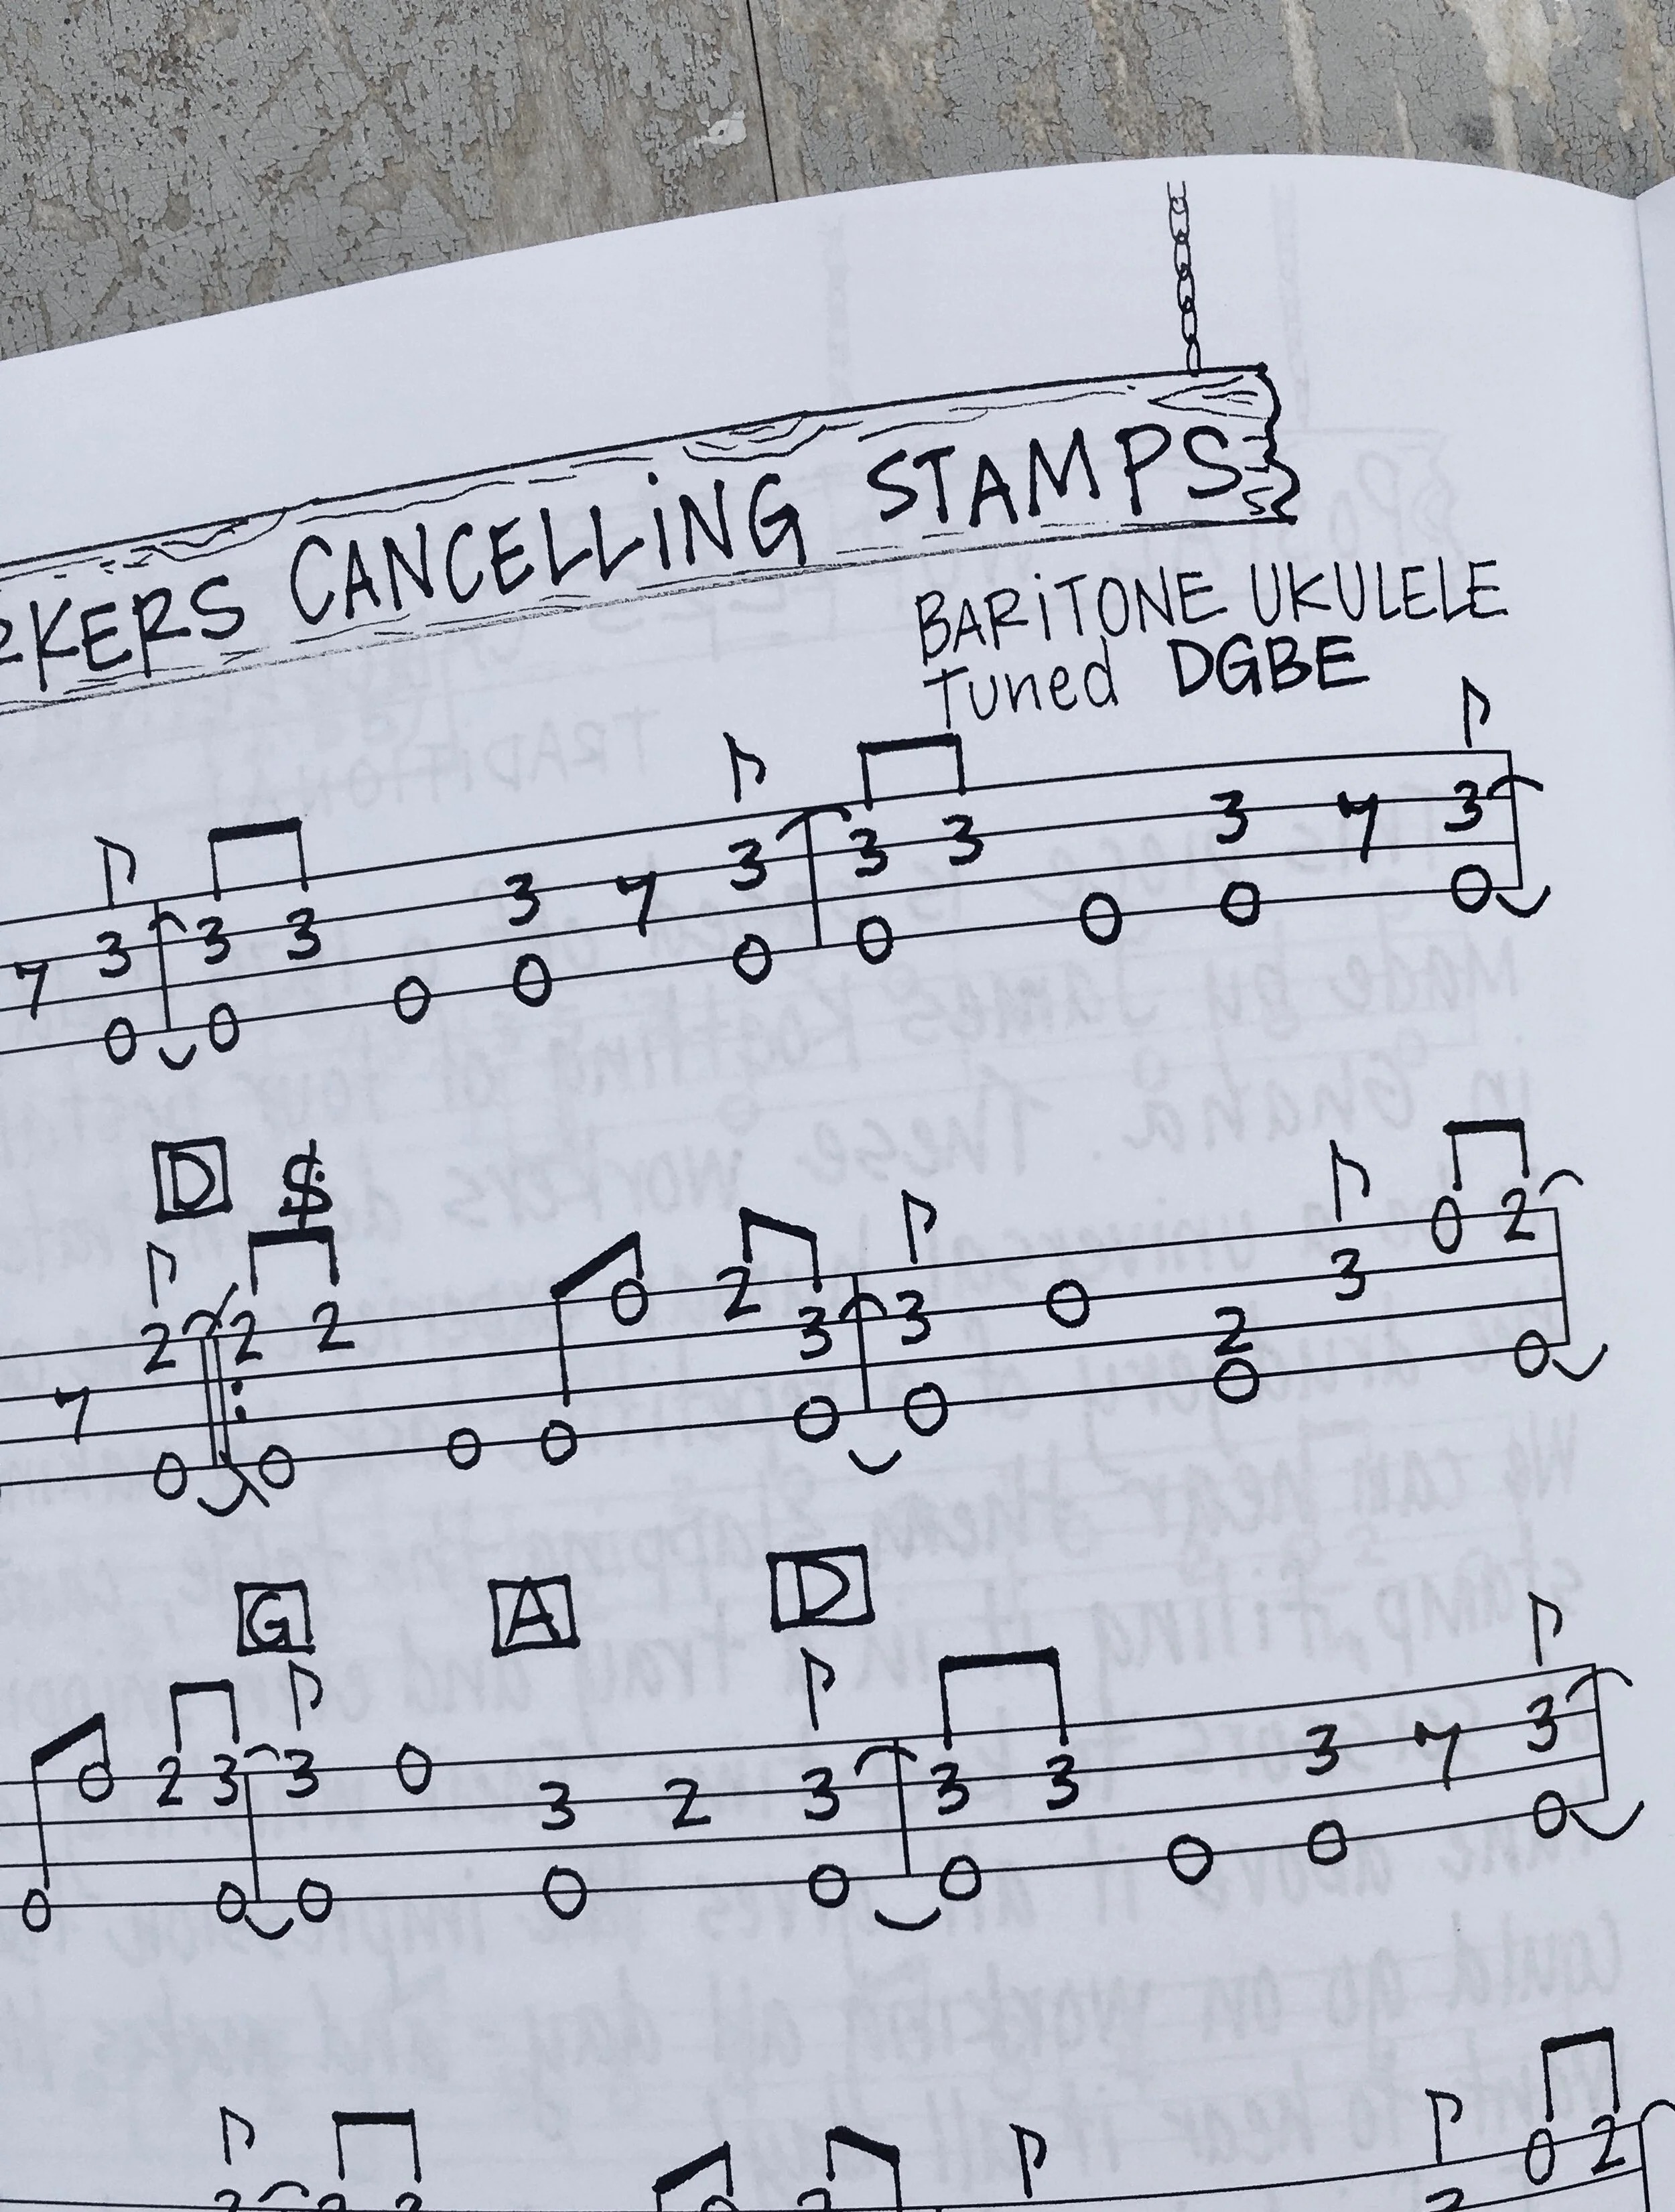 RKERS CANCELLiNG STAMPS
BARiTONE UKULELE
Tuned DGBE
7 3 3 3 3 7 3 3 3 3 7 3
0 0 0 0 0 0 0 0 0
D
7 2 2 2 0 2 3 3 0 2 3 0 2
0 0 0 0 0 0 0 0
G A D
0 2 3 3 0 3 2 3 3 3 3 7 3
0 0 0 0 0 0 0 0 0
0 2